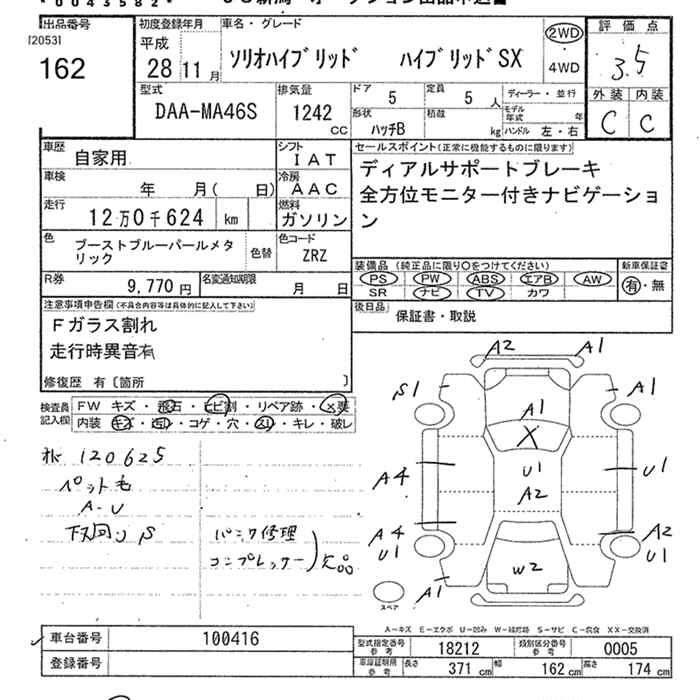 *0043582*
出品番号
[2053]
162
初度登録年月
平成
28 11 月
車名・グレード
ソリオハイブリッド ハイブリッドSX
2WD
4WD
評価点
3.5
外装 内装
C C
型式
DAA-MA46S
排気量
1242 CC
ドア 5
定員 5 人
形状 ハッチB
積載 kg
ディーラー・並行
モデル年式 年
ハンドル 左・右
車歴 自家用
シフト IAT
車検 年 月( 日)
冷房 AAC
走行 12万0千624 km
燃料 ガソリン
色 ブーストブルーパールメタリック
色替
色コード ZRZ
R券 9,770円
名変通知期限 月 日
セールスポイント(正常に機能するものに限ります)
ディアルサポートブレーキ
全方位モニター付きナビゲーショ
ン
装備品(純正品に限り○をつけてください)
PS PW ABS エアB AW
SR ナビ TV カワ
新車保証書
有・無
後日品 保証書・取説
注意事項申告欄(不具合内容等は具体的に記入して下さい)
Fガラス割れ
走行時異音有
修復歴 有〔箇所 〕
検査員記入欄
FW キズ・飛石・ヒビ割・リペア跡・×要
内装 キズ・汚れ・コゲ・穴・スリ・キレ・破レ
120625
ペット毛
A・U
下回り S
パニク修理
コンプレッサー
欠品
A2 A1
S1 A1
A1
X
A4 U1 U1
A2
A4 A2
U1 U1
W2
A1
スペア
A-キズ E-エクボ U-凹み W-補修跡 S-サビ C-腐食 XX-交換済
車台番号 100416
登録番号
型式指定番号参考 18212
類別区分番号参考 0005
車庫証明用参考 長さ 371 cm 幅 162 cm 高さ 174 cm